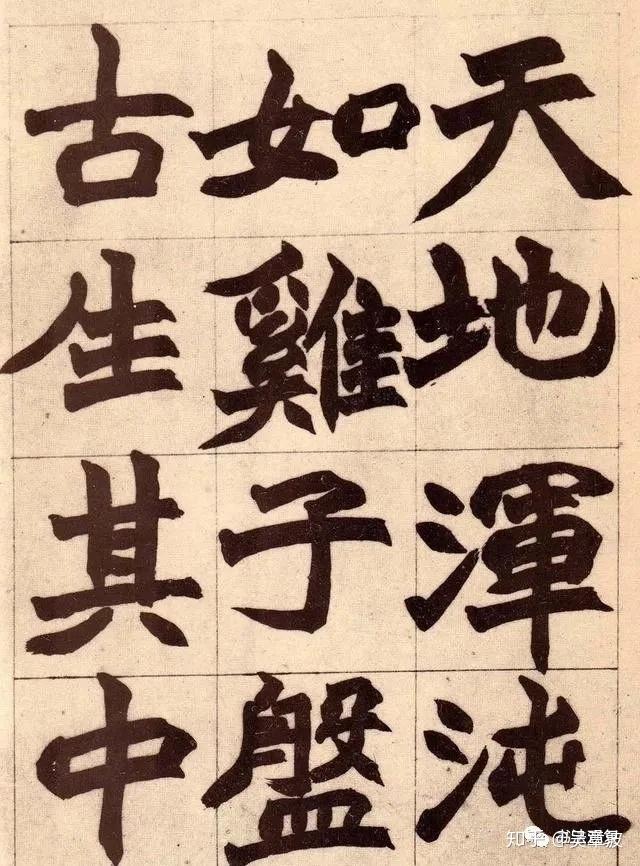 天地渾沌
如雞子盤
古生其中
知乎 @吴章敏